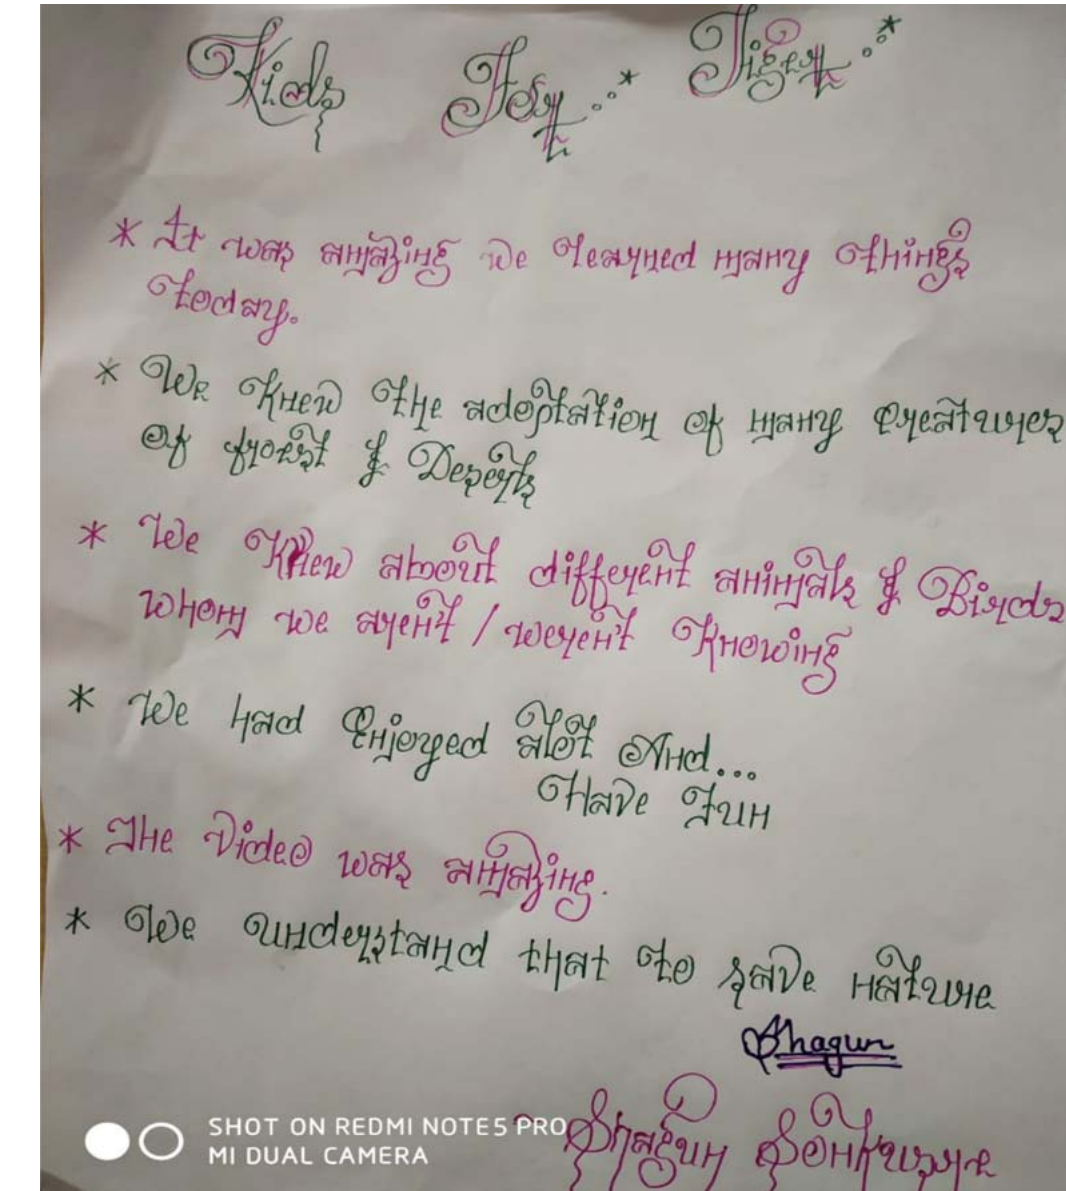 Kids For...* Tiger...*
* It was amazing we learned many things
today.
* We Knew the adoptation of many creatures
of forest & Deserts
* We Knew about different animals & Birds
whom we arent / werent Knowing
* We had Enjoyed alot And...
Have Fun
* The Video was amazing.
* We understand that to save nature
Shagun
Shagun
SHOT ON REDMI NOTE5 PRO
MI DUAL CAMERA